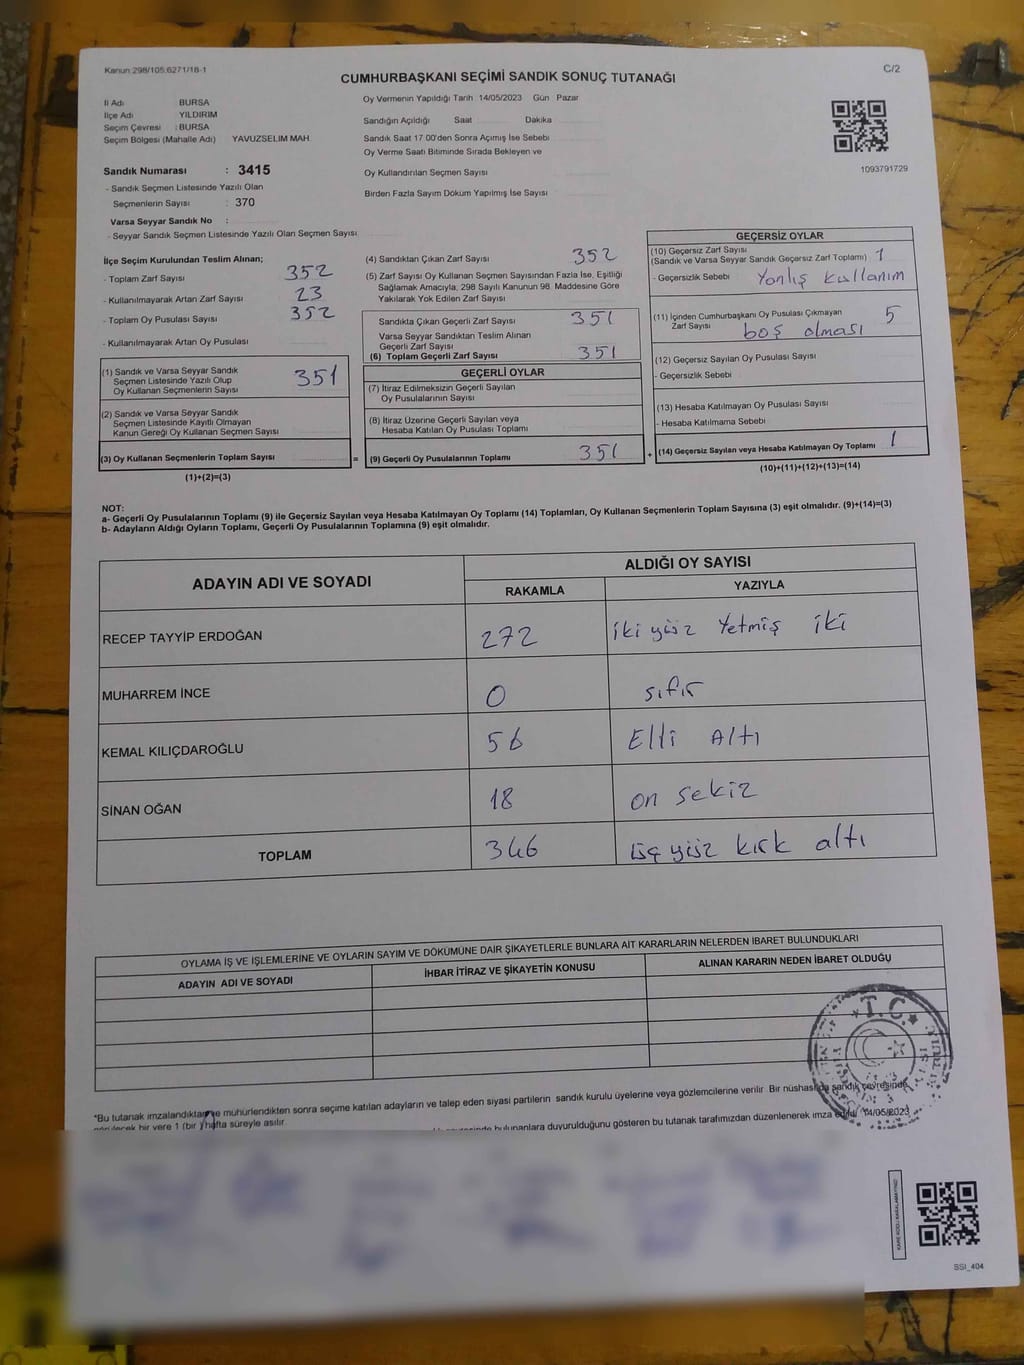 Kanun:298/105;6271/18-1
C/2
CUMHURBAŞKANI SEÇİMİ SANDIK SONUÇ TUTANAĞI
İl Adı BURSA
İlçe Adı YILDIRIM
Seçim Çevresi : BURSA
Seçim Bölgesi (Mahalle Adı) YAVUZSELIM MAH.
Sandık Numarası : 3415
- Sandık Seçmen Listesinde Yazılı Olan
Seçmenlerin Sayısı : 370
Varsa Seyyar Sandık No :
- Seyyar Sandık Seçmen Listesinde Yazılı Olan Seçmen Sayısı
Oy Vermenin Yapıldığı Tarih 14/05/2023 Gün Pazar
Sandığın Açıldığı Saat Dakika
Sandık Saat 17:00'den Sonra Açımış İse Sebebi
Oy Verme Saati Bitiminde Sırada Bekleyen ve
Oy Kullandırılan Seçmen Sayısı
Birden Fazla Sayım Döküm Yapılmış İse Sayısı
1093791729
İlçe Seçim Kurulundan Teslim Alınan;
- Toplam Zarf Sayısı 352
- Kullanılmayarak Artan Zarf Sayısı 23
- Toplam Oy Pusulası Sayısı 352
- Kullanılmayarak Artan Oy Pusulası
(1) Sandık ve Varsa Seyyar Sandık
Seçmen Listesinde Yazılı Olup
Oy Kullanan Seçmenlerin Sayısı 351
(2) Sandık ve Varsa Seyyar Sandık
Seçmen Listesinde Kayıtlı Olmayan
Kanun Gereği Oy Kullanan Seçmen Sayısı
(3) Oy Kullanan Seçmenlerin Toplam Sayısı
(1)+(2)=(3)
(4) Sandıktan Çıkan Zarf Sayısı 352
(5) Zarf Sayısı Oy Kullanan Seçmen Sayısından Fazla İse, Eşitliği
Sağlamak Amacıyla, 298 Sayılı Kanunun 98. Maddesine Göre
Yakılarak Yok Edilen Zarf Sayısı
Sandıkta Çıkan Geçerli Zarf Sayısı 351
Varsa Seyyar Sandıktan Teslim Alınan
Geçerli Zarf Sayısı
(6) Toplam Geçerli Zarf Sayısı 351
GEÇERLİ OYLAR
(7) İtiraz Edilmeksizin Geçerli Sayılan
Oy Pusulalarının Sayısı
(8) İtiraz Üzerine Geçerli Sayılan veya
Hesaba Katılan Oy Pusulası Toplamı
= (9) Geçerli Oy Pusulalarının Toplamı 351
GEÇERSİZ OYLAR
(10) Geçersiz Zarf Sayısı
(Sandık ve Varsa Seyyar Sandık Geçersiz Zarf Toplamı) 1
- Geçersizlik Sebebi Yanlış kullanım
(11) İçinden Cumhurbaşkanı Oy Pusulası Çıkmayan
Zarf Sayısı 5
boş olması
(12) Geçersiz Sayılan Oy Pusulası Sayısı
- Geçersizlik Sebebi
(13) Hesaba Katılmayan Oy Pusulası Sayısı
- Hesaba Katılmama Sebebi
+ (14) Geçersiz Sayılan veya Hesaba Katılmayan Oy Toplamı 1
(10)+(11)+(12)+(13)=(14)
NOT:
a- Geçerli Oy Pusulalarının Toplamı (9) ile Geçersiz Sayılan veya Hesaba Katılmayan Oy Toplamı (14) Toplamları, Oy Kullanan Seçmenlerin Toplam Sayısına (3) eşit olmalıdır. (9)+(14)=(3)
b- Adayların Aldığı Oyların Toplamı, Geçerli Oy Pusulalarının Toplamına (9) eşit olmalıdır.
ADAYIN ADI VE SOYADI ALDIĞI OY SAYISI
RAKAMLA YAZIYLA
RECEP TAYYİP ERDOĞAN 272 iki yüz Yetmiş iki
MUHARREM İNCE 0 sıfır
KEMAL KILIÇDAROĞLU 56 Elli Altı
SİNAN OĞAN 18 on sekiz
TOPLAM 346 üç yüz kırk altı
OYLAMA İŞ VE İŞLEMLERİNE VE OYLARIN SAYIM VE DÖKÜMÜNE DAİR ŞİKAYETLERLE BUNLARA AİT KARARLARIN NELERDEN İBARET BULUNDUKLARI
ADAYIN ADI VE SOYADI İHBAR İTİRAZ VE ŞİKAYETİN KONUSU ALINAN KARARIN NEDEN İBARET OLDUĞU
T.C.
*Bu tutanak imzalandıktan ve mühürlendikten sonra seçime katılan adayların ve talep eden siyasi partilerin sandık kurulu üyelerine veya gözlemcilerine verilir. Bir nüshası da sandık çevresinde
görülecek bir yere 1 (bir) hafta süreyle asılır.
bulunanlara duyurulduğunu gösteren bu tutanak tarafımızdan düzenlenerek imza edildi. 14/05/2023
SSI_404